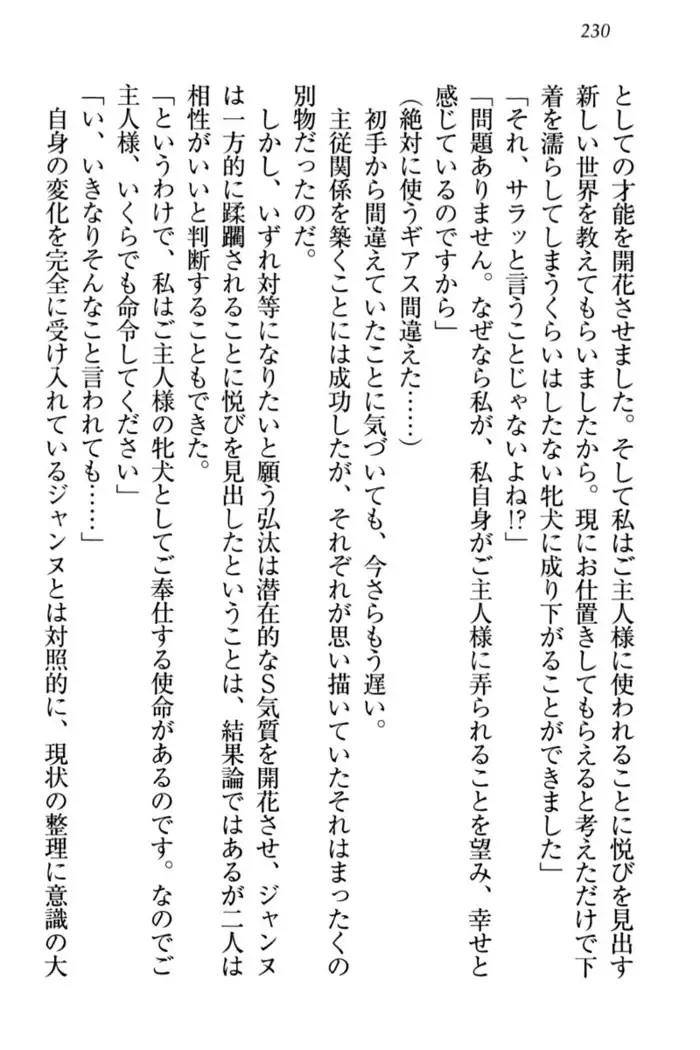 230
としての才能を開花させました。そして私はご主人様に使われることに悦びを見出す
新しい世界を教えてもらいましたから。現にお仕置きしてもらえると考えただけで下
着を濡らしてしまうくらいはしたない牝犬に成り下がることができました」
「それ、サラッと言うことじゃないよね!?」
「問題ありません。なぜなら私が、私自身がご主人様に弄られることを望み、幸せと
感じているのですから」
(絶対に使うギアス間違えた……)
初手から間違えていたことに気づいても、今さらもう遅い。
主従関係を築くことには成功したが、それぞれが思い描いていたそれはまったくの
別物だったのだ。
しかし、いずれ対等になりたいと願う弘汰は潜在的なS気質を開花させ、ジャンヌ
は一方的に蹂躙されることに悦びを見出したということは、結果論ではあるが二人は
相性がいいと判断することもできた。
「というわけで、私はご主人様の牝犬としてご奉仕する使命があるのです。なのでご
主人様、いくらでも命令してください」
「い、いきなりそんなこと言われても……」
自身の変化を完全に受け入れているジャンヌとは対照的に、現状の整理に意識の大